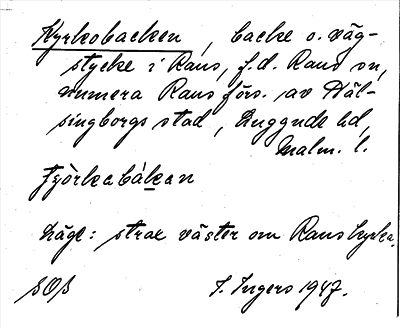 Kyrkobacken, backe o. väg-
stycke i Raus, f.d. Raus sn,
numera Raus förs. av Häl-
singborgs stad, Luggude hd,
Malm. l.
ɕyrkabakan
Läge: strax väster om Raus kyrka.
SOß
I. Ingers 1947.